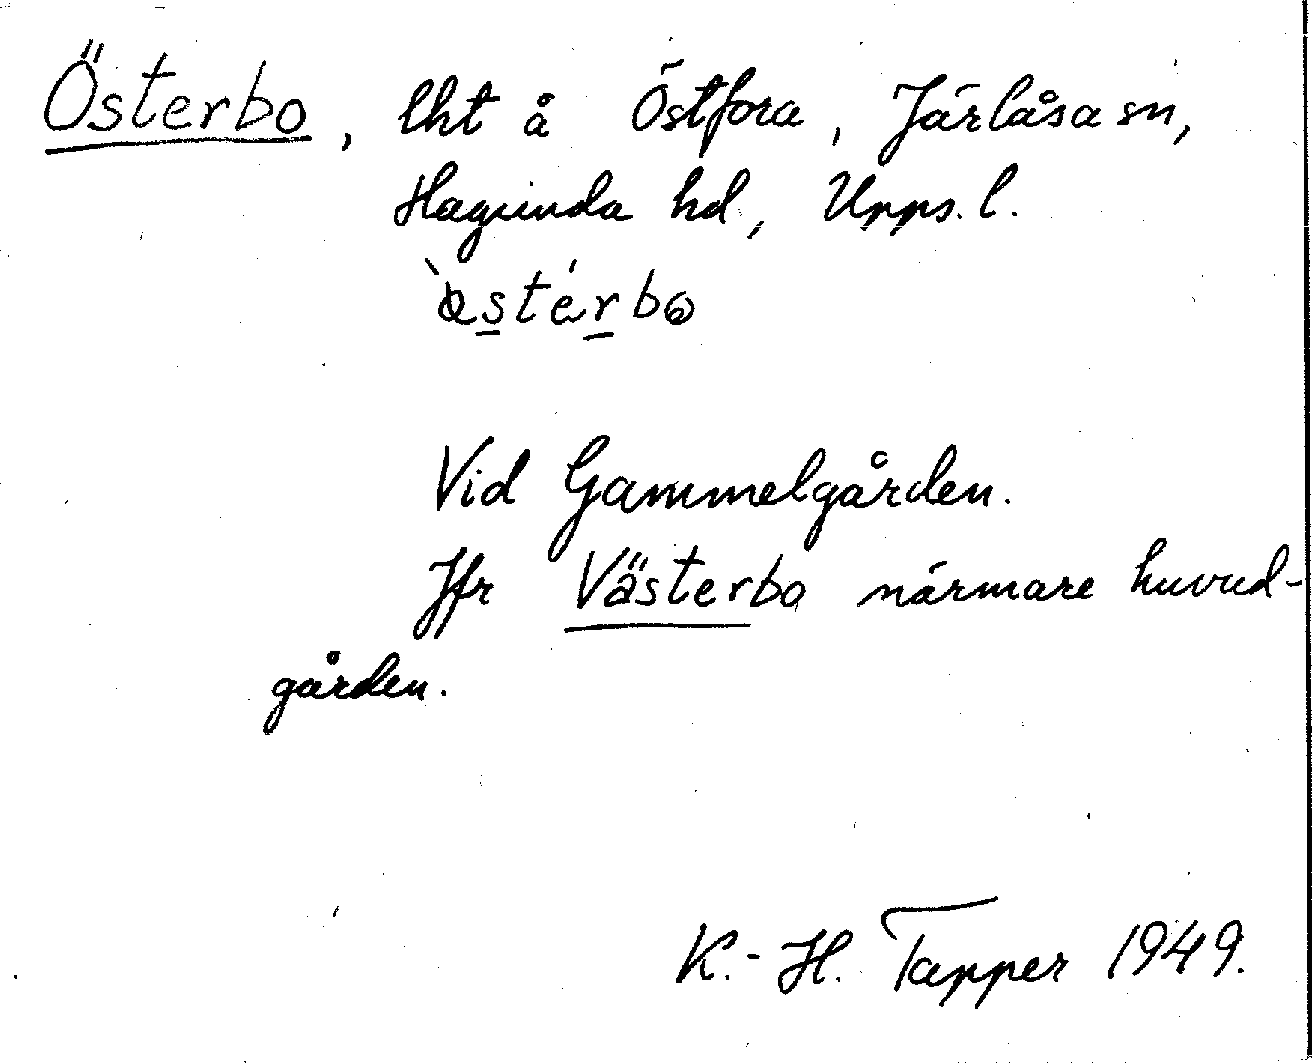 Österbo, lht å Östfora, Järlåsa sn,
Hagunda hd, Upps. l.
Vid Gammelgården.
Jfr Västerbo närmare huvud-
gården.
K.-H. Tapper 1949.